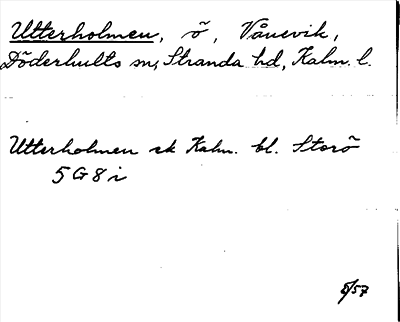 Utterholmen, ö, Vånevik,
Döderhults sn, Stranda hd, Kalm. l.
Utterholmen ek Kalm. bl. Storö
5 G 8 i
5/57